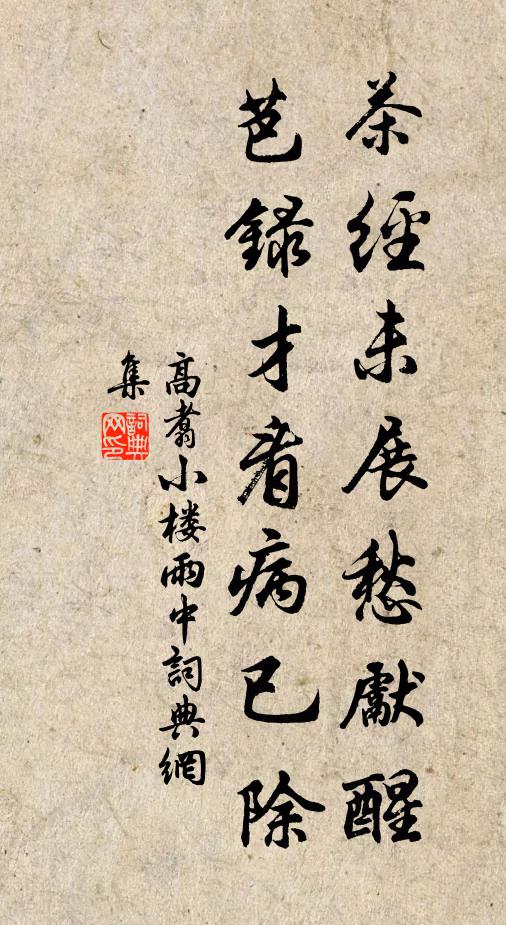 茶經未展愁獻醒
芭錄才看病已除
高翥小楼雨中詞典網
集
詞典
网印